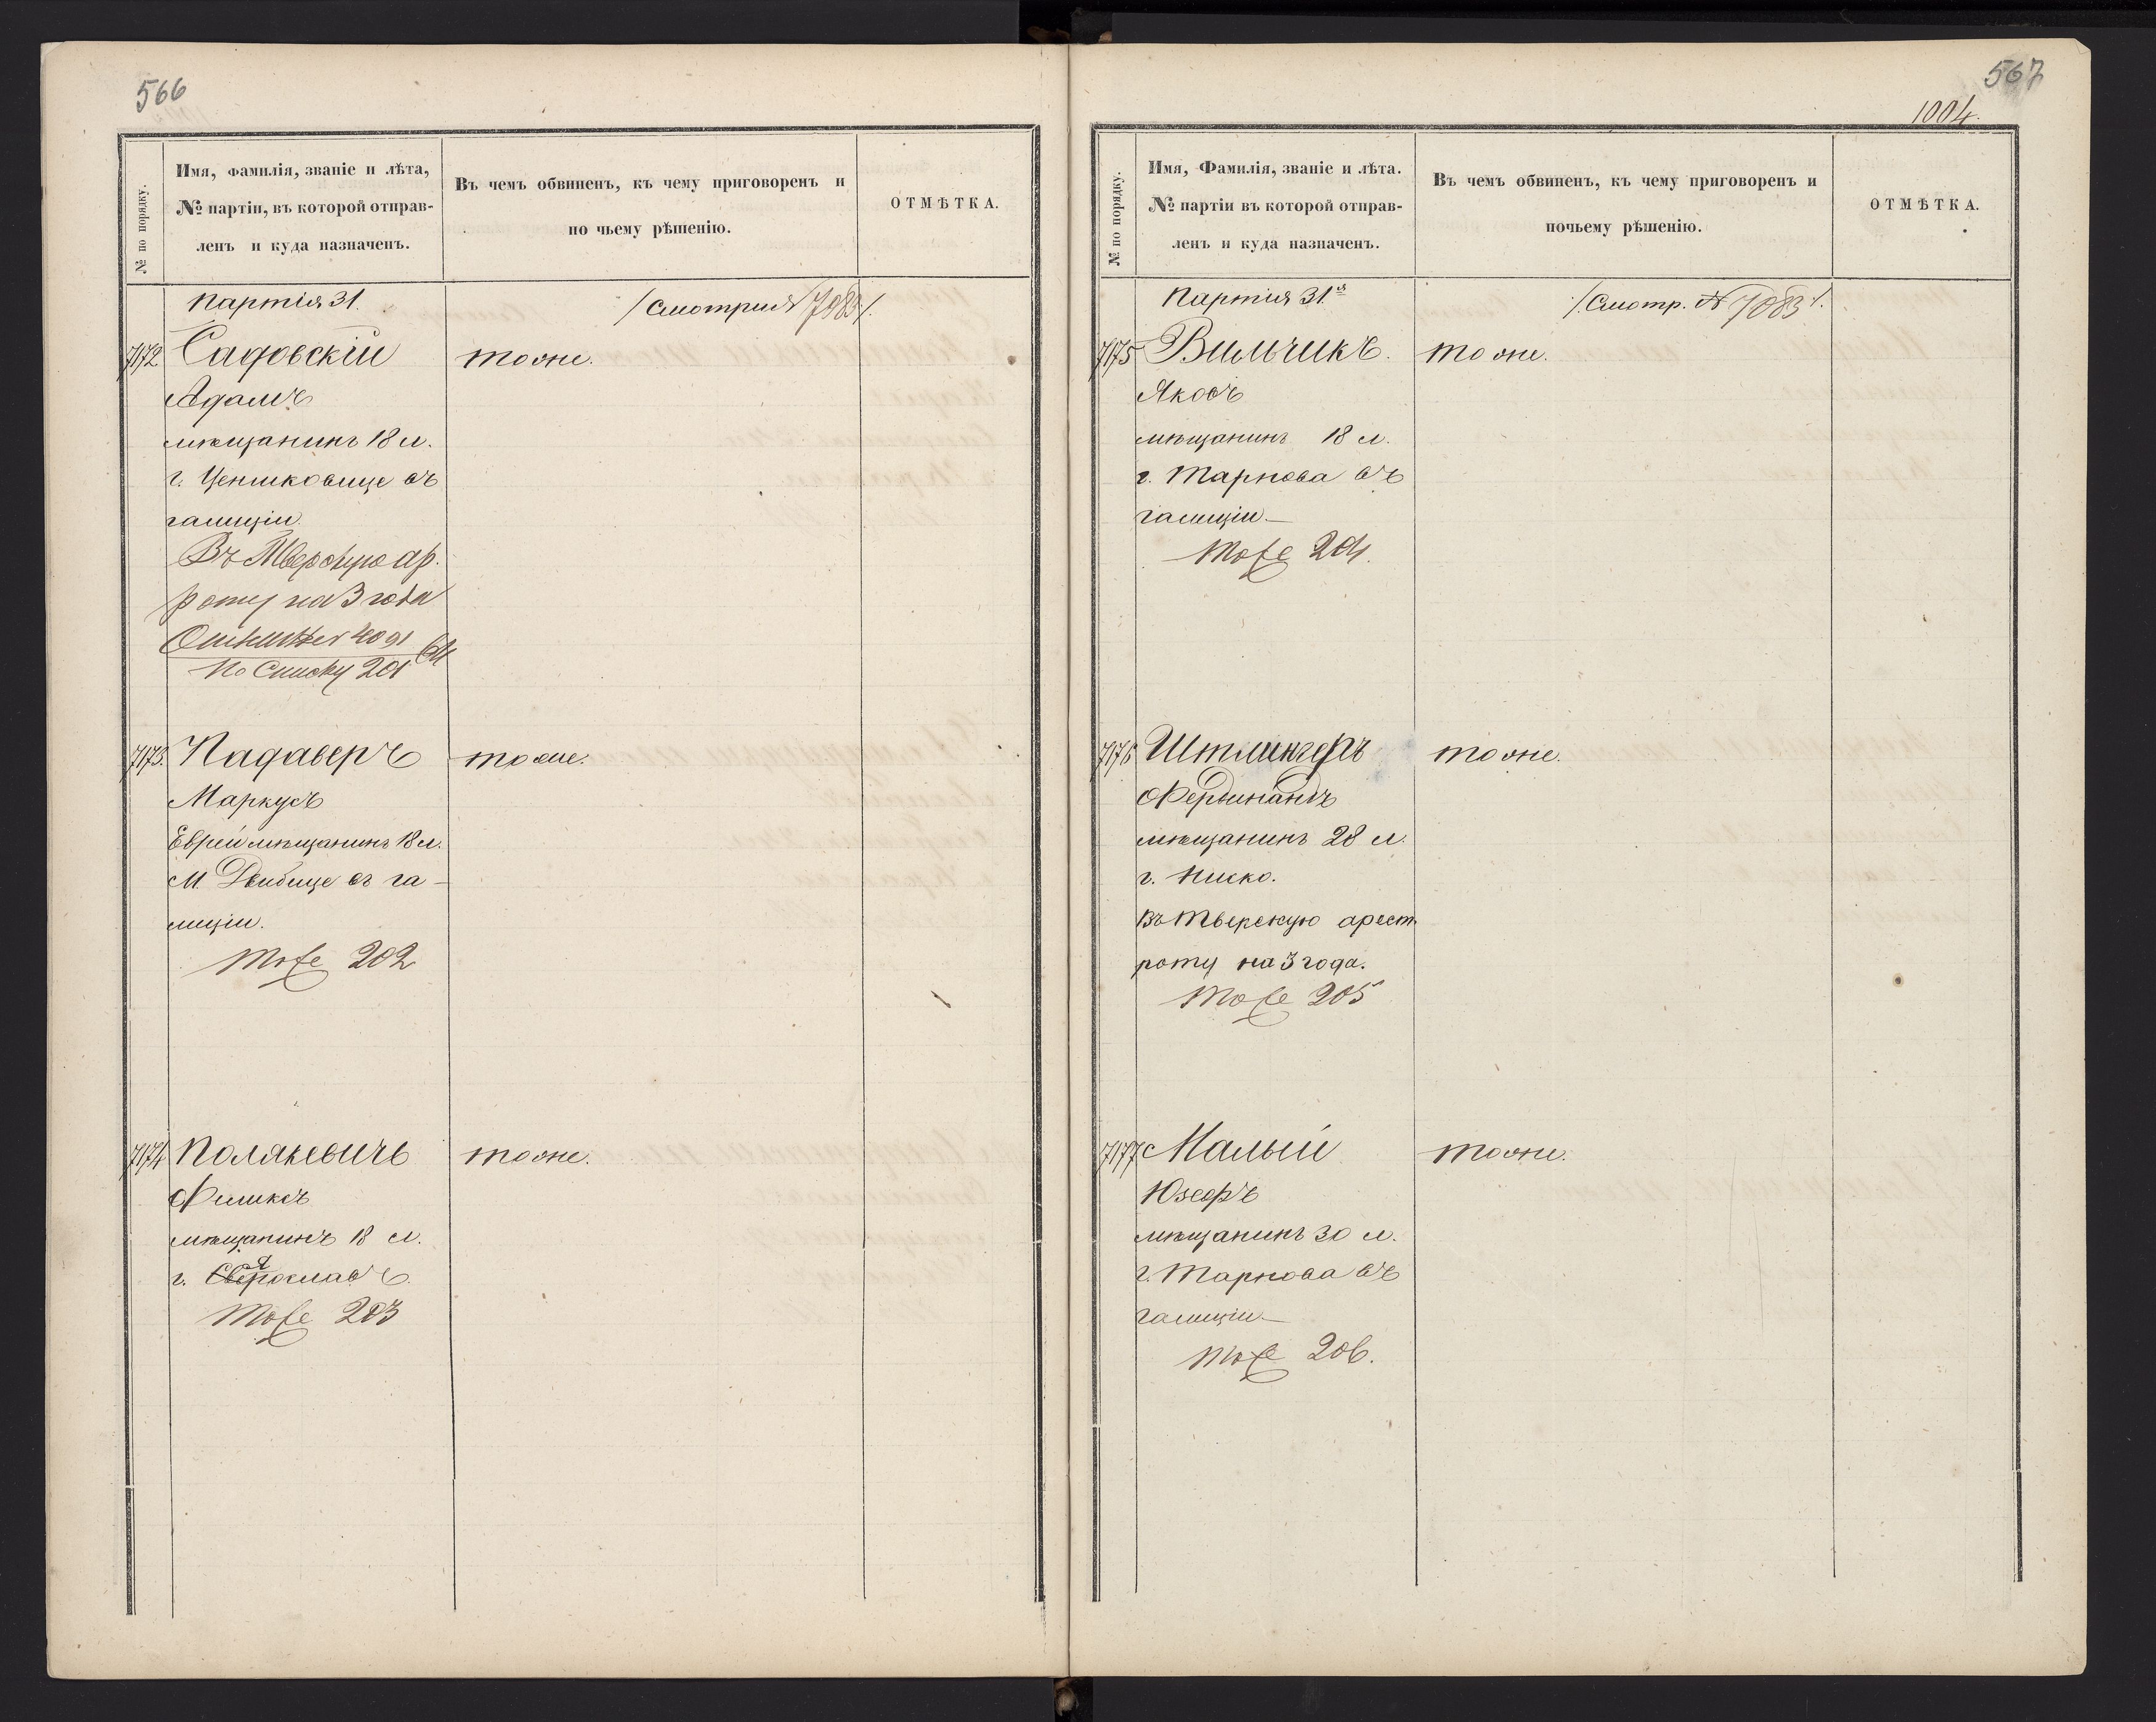 566
№ по порядку.
Имя, фамилія, званіе и лѣта,
№ партіи, въ которой отправ-
ленъ и куда назначенъ.
Въ чемъ обвиненъ, къ чему приговоренъ и
по чьему рѣшенію.
ОТМѢТКА.
Партія 31.
/Смотри № 7083/.
7172
Садовскій
тоже.
Адамъ
мѣщанинъ 18 л.
г. Ценшковице въ
Галиціи.
Въ Тверскую ар.
роту на 3 года
4091
По списку 201
7173.
Падаверъ
тоже.
Маркусъ
Еврей мѣщанинъ 18 л.
М. Дембице въ Га-
лиціи.
Тоже 202
7174
Полякевичъ
тоже.
Филиксъ
мѣщанинъ 18 л.
г. Ярославъ.
Тоже 203
567
1004.
№ по порядку.
Имя, Фамилія, званіе и лѣта.
№ партіи въ которой отправ-
ленъ и куда назначенъ.
Въ чемъ обвиненъ, къ чему приговоренъ и
почьему рѣшенію.
ОТМѢТКА.
Партія 31я
/Смотр. № 7083/.
7175
Вильчикъ.
тоже.
Якобъ
мѣщанинъ 18 л.
г. Тарнова въ
Галиціи.—
Тоже 204.
7176
Штлингеръ
тоже.
Фердинандъ
мѣщанинъ 28 л.
г. Ниско.
Въ Тверскую арест.
роту на 3 года.
Тоже 205
7177
Малый
тоже.
Юзефъ
мѣщанинъ 30 л.
г. Тарнова въ
Галиціи.—
Тоже 206.